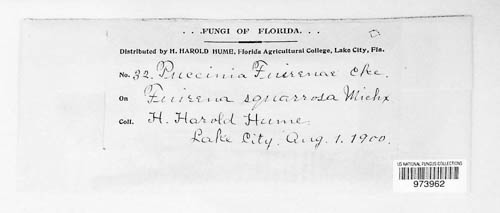 . . .FUNGI OF FLORIDA. . .
Distributed by H. HAROLD HUME, Florida Agricultural College, Lake City, Fla.
No. 32. Puccinia Fuirenae Cke.
On Fuirena squarrosa Michx
Coll. H. Harold Hume.
Lake City. Aug. 1. 1900.
US NATIONAL FUNGUS COLLECTIONS
973962